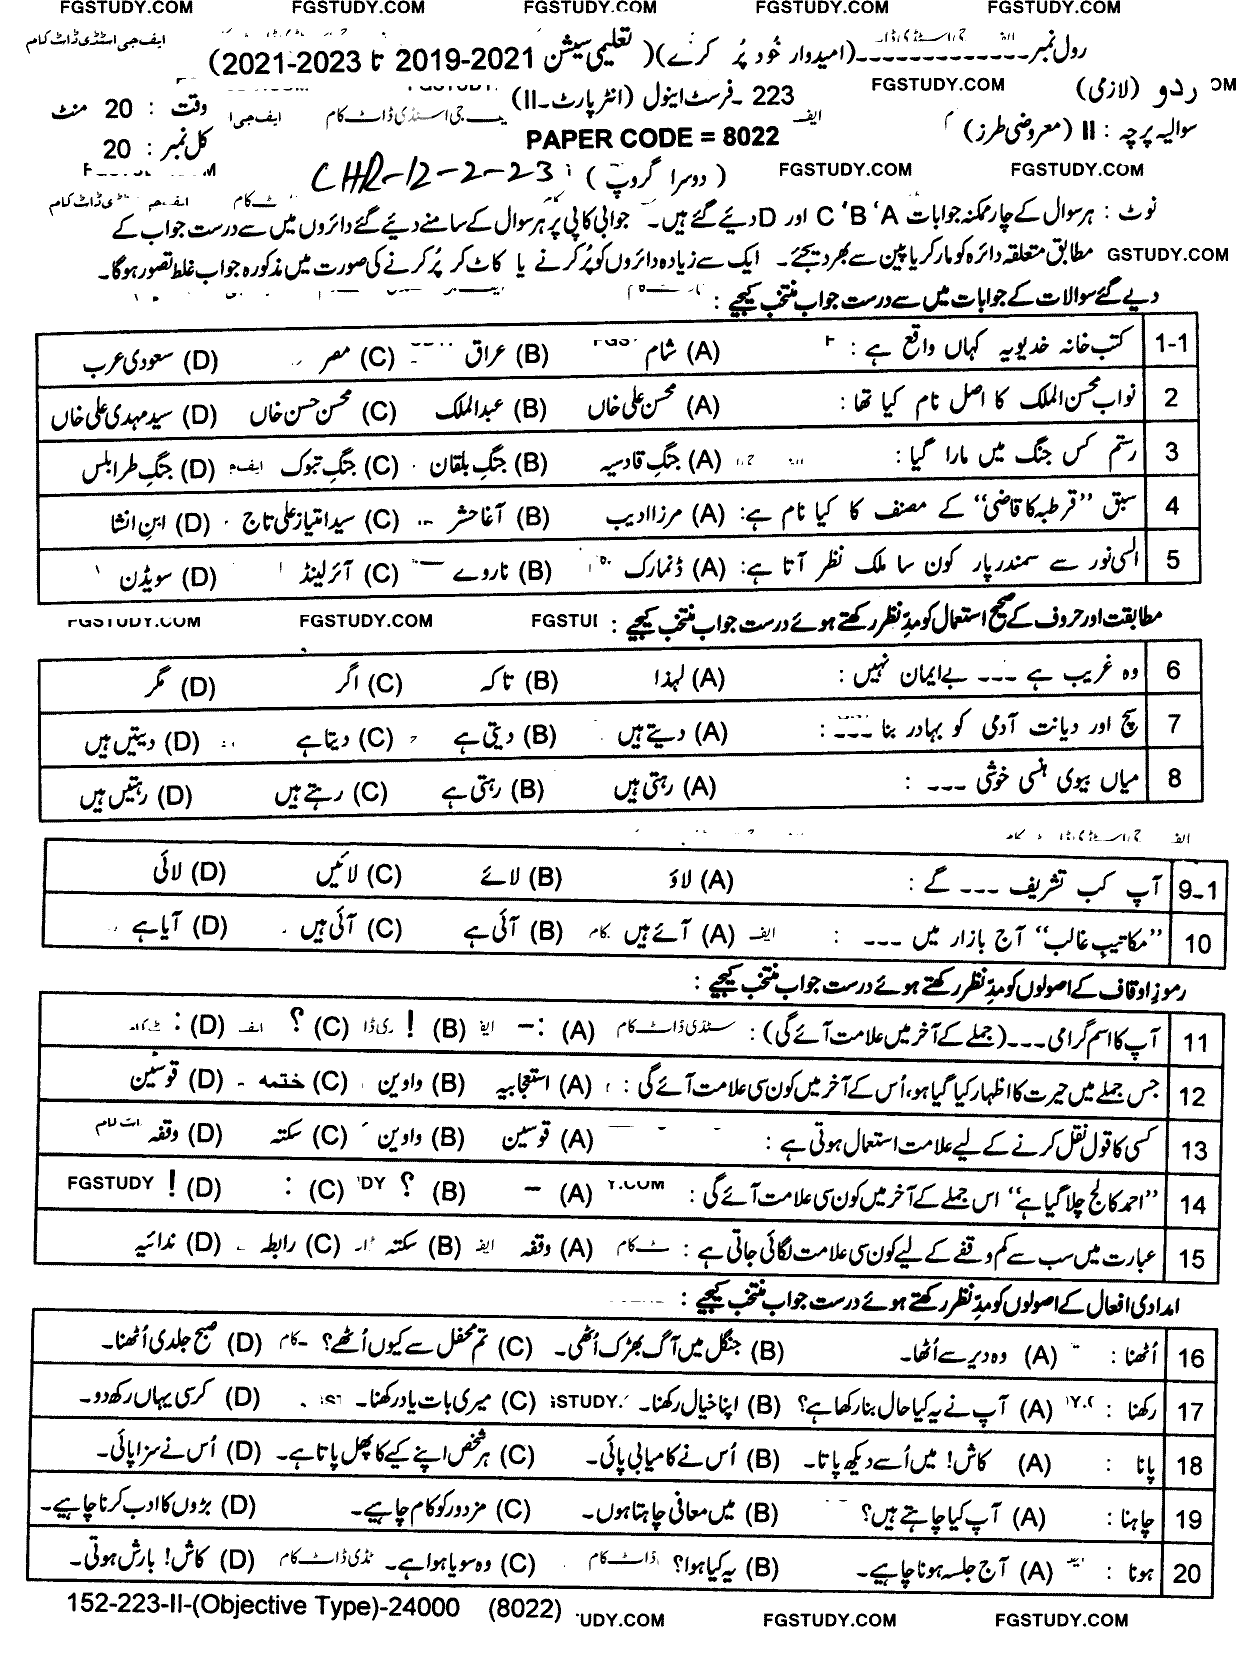 FGSTUDY.COM FGSTUDY.COM FGSTUDY.COM FGSTUDY.COM FGSTUDY.COM
رول نمبر ------------(امیدوار خود پُر کرے)( تعلیمی سیشن 2021-2019 تا 2023-2021) ایف جی اسٹڈی ڈاٹ کام
اردو (لازمی) FGSTUDY.COM 223 ۔ فرسٹ اینول (انٹر پارٹ۔II) وقت : 20 منٹ
سوالیہ پرچہ : II (معروضی طرز) PAPER CODE = 8022 کل نمبر : 20
FGSTUDY.COM FGSTUDY.COM (دوسرا گروپ) CHR-12-2-23
نوٹ : ہر سوال کے چار ممکنہ جوابات A‘ B‘ C اور D دیئے گئے ہیں۔ جوابی کاپی پر ہر سوال کے سامنے دیے گئے دائروں میں سے درست جواب کے
مطابق متعلقہ دائرہ کو مارکر یا پین سے بھر دیجئے۔ ایک سے زیادہ دائروں کو پُر کرنے یا کاٹ کر پُر کرنے کی صورت میں مذکورہ جواب غلط تصور ہوگا۔ GSTUDY.COM
دیے گئے سوالات کے جوابات میں سے درست جواب منتخب کیجیے :
1-1 کتب خانہ خدیویہ کہاں واقع ہے : (A) شام (B) عراق (C) مصر (D) سعودی عرب
2 نواب محسن الملک کا اصل نام کیا تھا: (A) محسن علی خاں (B) عبدالملک (C) محسن حسن خاں (D) سید مہدی علی خاں
3 رستم کس جنگ میں مارا گیا : (A) جنگِ قادسیہ (B) جنگِ بلقان (C) جنگِ تبوک (D) جنگِ طرابلس
4 سبق ”قرطبہ کا قاضی“ کے مصنف کا کیا نام ہے: (A) مرزا ادیب (B) آغا حشر (C) سید امتیاز علی تاج (D) ابنِ انشا
5 السی نور سے سمندر پار کون سا ملک نظر آتا ہے: (A) ڈنمارک (B) ناروے (C) آئرلینڈ (D) سویڈن
مطابقت اور حروف کے صحیح استعمال کو مدِّنظر رکھتے ہوئے درست جواب منتخب کیجیے : FGSTUI FGSTUDY.COM FGSTUDY.COM
6 وہ غریب ہے ۔۔۔ بے ایمان نہیں : (A) لہذا (B) تاکہ (C) اگر (D) مگر
7 سچ اور دیانت آدمی کو بہادر بنا ۔۔۔ : (A) دیتے ہیں (B) دیتی ہے (C) دیتا ہے (D) دیتیں ہیں
8 میاں بیوی ہنسی خوشی ۔۔۔ : (A) رہتی ہیں (B) رہتی ہے (C) رہتے ہیں (D) رہتیں ہیں
9-1 آپ کب تشریف ۔۔۔ گے : (A) لاؤ (B) لائے (C) لائیں (D) لائی
10 ”مکاتیبِ غالب“ آج بازار میں ۔۔۔ : (A) آئے ہیں (B) آئی ہے (C) آئی ہیں (D) آیا ہے
رموزِ اوقاف کے اصولوں کو مدِّنظر رکھتے ہوئے درست جواب منتخب کیجیے :
11 آپ کا اسم گرامی ۔۔۔(جملے کے آخر میں علامت آئے گی) : (A) :- (B) ! (C) ؟ (D) :
12 جس جملے میں حیرت کا اظہار کیا گیا ہو، اُس کے آخر میں کون سی علامت آئے گی : (A) استعجابیہ (B) واوین (C) ختمہ (D) قوسین
13 کسی کا قول نقل کرنے کے لیے علامت استعمال ہوتی ہے : (A) قوسین (B) واوین (C) سکتہ (D) وقفہ
14 ”احمد کالج چلا گیا ہے“ اس جملے کے آخر میں کون سی علامت آئے گی : (A) - (B) ؟ (C) : (D) ! FGSTUDY
15 عبارت میں سب سے کم وقفے کے لیے کون سی علامت لگائی جاتی ہے : (A) وقفہ (B) سکتہ (C) رابطہ (D) ندائیہ
امدادی افعال کے اصولوں کو مدِّنظر رکھتے ہوئے درست جواب منتخب کیجیے :
16 اُٹھنا : (A) وہ دیر سے اُٹھا۔ (B) جنگل میں آگ بھڑک اُٹھی۔ (C) تم محفل سے کیوں اُٹھے؟ (D) صبح جلدی اُٹھنا۔
17 رکھنا : (A) آپ نے یہ کیا حال بنا رکھا ہے؟ (B) اپنا خیال رکھنا۔ (C) میری بات یاد رکھنا۔ (D) کرسی یہاں رکھ دو۔
18 پانا : (A) کاش! میں اُسے دیکھ پاتا۔ (B) اُس نے کامیابی پائی۔ (C) ہر شخص اپنے کیے کا پھل پاتا ہے۔ (D) اُس نے سزا پائی۔
19 چاہنا : (A) آپ کیا چاہتے ہیں؟ (B) میں معافی چاہتا ہوں۔ (C) مزدور کو کام چاہیے۔ (D) بڑوں کا ادب کرنا چاہیے۔
20 ہونا : (A) آج جلسہ ہونا چاہیے۔ (B) یہ کیا ہوا؟ (C) وہ سویا ہوا ہے۔ (D) کاش! بارش ہوتی۔
152-223-II-(Objective Type)-24000 (8022) UDY.COM FGSTUDY.COM FGSTUDY.COM